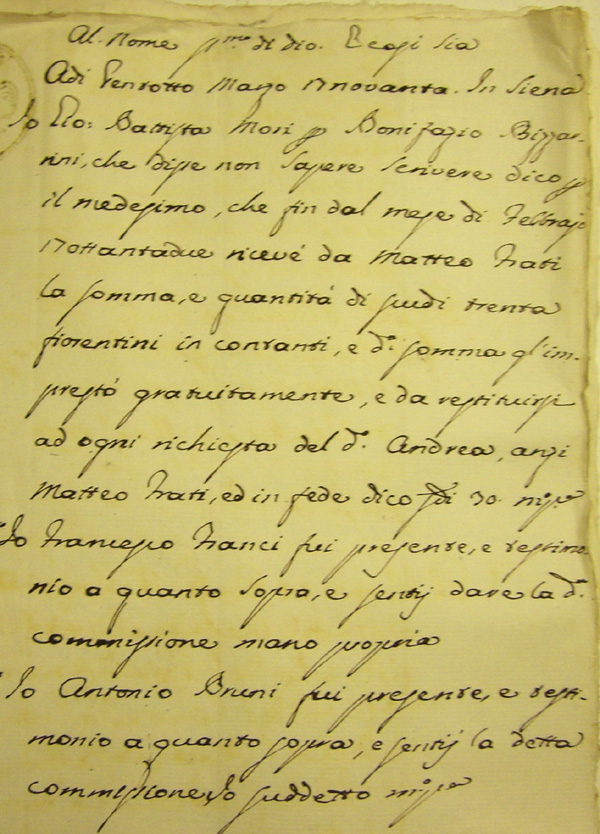 Al. Nome pmo di dio. E cosi sia
Adi Ventotto Marzo 17novanta. In Siena
Io Gio: Battista Mori p Bonifazio Bizzar-
rini, che disse non sapere scrivere dico p
il medesimo, che fin dal mese di Febbrajo
17ottantadue ricevé da Matteo Frati
la somma, e quantità di scudi trenta
fiorentini in contanti, e da. somma gl'im-
prestò gratuitamente, e da restituirsi
ad ogni richiesta del do. Andrea, anzi
Matteo Frati, ed in fede dico 30 mpo
Io Francesco Franci fui presente, e testimo
nio a quanto sopra, e sentij dare la da.
commissione mano propria
Io Antonio Bruni fui presente, e testi-
monio a quanto sopra, e sentij la detta
commissione, Io suddetto mpa